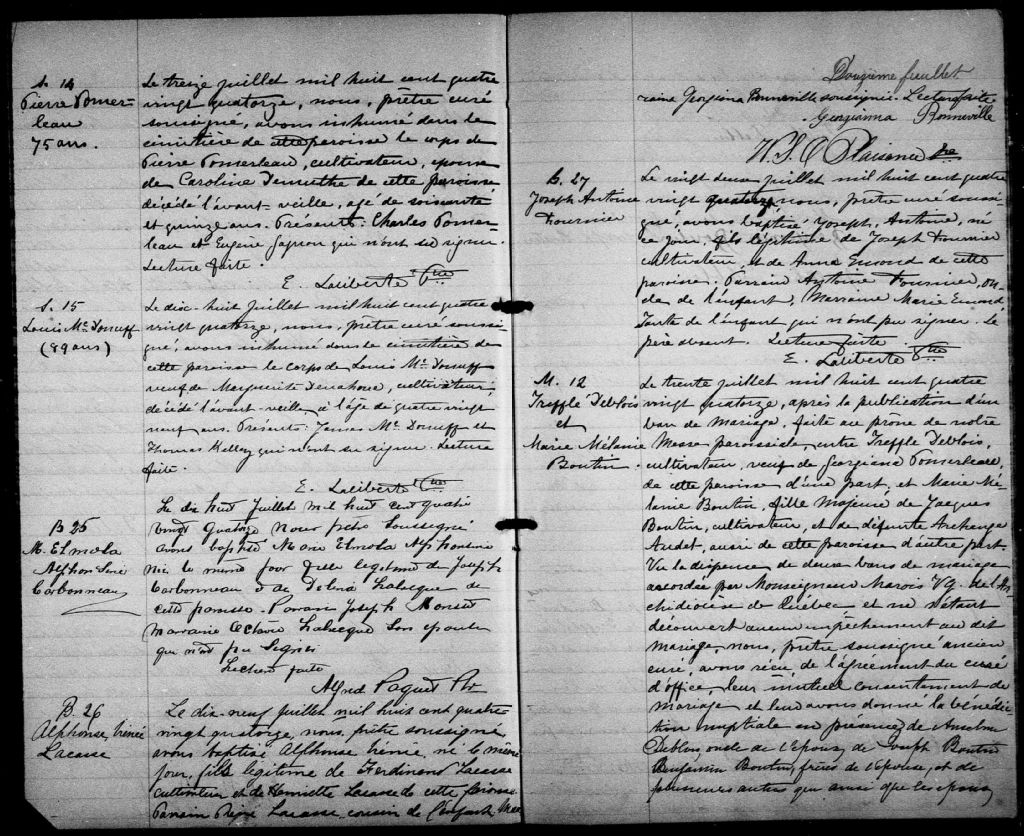 S. 14
Pierre Pomer-
leau
75 ans.
Le treize juillet mil huit cent quatre
vingt quatorze, nous, prêtre curé
soussigné, avons inhumé dans le
cimetière de cette paroisse le corps de
Pierre Pomerleau, cultivateur, époux
de Caroline de cette paroisse
décédé l'avant-veille, agé de soixante
et quinze ans. Présents: Charles Pomer-
leau et Eugène Gagnon qui n'ont su signer.
Lecture faite.
E. Laliberté Ptre
S. 15
Louis Mc
(89 ans)
Le dix-huit juillet mil huit cent quatre
vingt quatorze, nous, prêtre curé soussi-
gné, avons inhumé dans le cimetière de
cette paroisse le corps de Louis Mc
veuf de Marguerite cultivateur,
décédé l'avant-veille, à l'âge de quatre vingt
neuf ans. Présents: James Mc et
Thomas Kelley qui n'ont su signer. Lecture
faite.
E. Laliberté Ptre
B 25
M. Elmola
Alphonsine
Carbonneau
Le dix huit Juillet mil huit cent quatre
vingt quatorze Nous prêtre soussigné
avons baptisé Marie Elmola Alphonsine
née le même jour fille légitime de Joseph
Carbonneau et de Labecque de
cette paroisse. Parrain Joseph
Marraine Octavie Labecque son épouse
qui n'ont pu signer
Lecture faite
Alfred Paquet Ptr
B. 26
Alphonse, Irénée
Lacasse
Le dix-neuf juillet mil huit cent quatre
vingt quatorze, nous, prêtre soussigné,
avons baptisé Alphonse Irénée, né le même
jour, fils légitime de Ferdinand Lacasse
cultivateur et de Henriette Lacasse de cette paroisse
Parrain Lacasse, cousin de l'enfant. Mar
Douzième feuillet
raine Georgiana Bonneville soussignée. Lecture faite
Georgianna Bonneville
Plaisance Ptre
B. 27
Joseph Antoine
Fournier
Le vingt deux juillet mil huit cent quatre
vingt quatorze nous, prêtre curé soussi-
gné, avons baptisé Joseph, Antoine, né
ce jour, fils légitime de Joseph Fournier
cultivateur, et de Anna Emond de cette
paroisse. Parrain Antoine Fournier, on-
cle de l'enfant, Marraine Marie Emond
Tante de l'enfant qui n'ont pu signer. Le
père absent. Lecture faite.
E. Laliberté Ptre
M. 12
Treffle Deblois
et
Marie Mélanie
Boutin.
Le trente juillet mil huit cent quatre
vingt quatorze, après la publication d'un
ban de mariage, faite au prône de notre
Messe paroissiale, entre Treffle Deblois,
cultivateur, veuf de Georgiana Pomerleau,
de cette paroisse d'une part, et Marie Mé-
lanie Boutin, fille majeure de Jacques
Boutin, cultivateur, et de défunte Archange
Audet, aussi de cette paroisse d'autre part.
Vu la dispense de deux bans de mariage
accordée par Monseigneur Marois V.G. de l'Ar-
chidiocèse de Québec et ne s'étant
découvert aucun empêchement au dit
mariage, nous, prêtre soussigné ancien
curé, avons reçu de l'agrément du curé
d'office, leur mutuel consentement de
mariage et leur avons donné la bénédic-
tion nuptiale en présence de Anselme
Deblois, oncle de l'époux, de Joseph Boutin
Benjamin Boutin, frères de l'épouse, et de
plusieurs autres qui ainsi que les époux